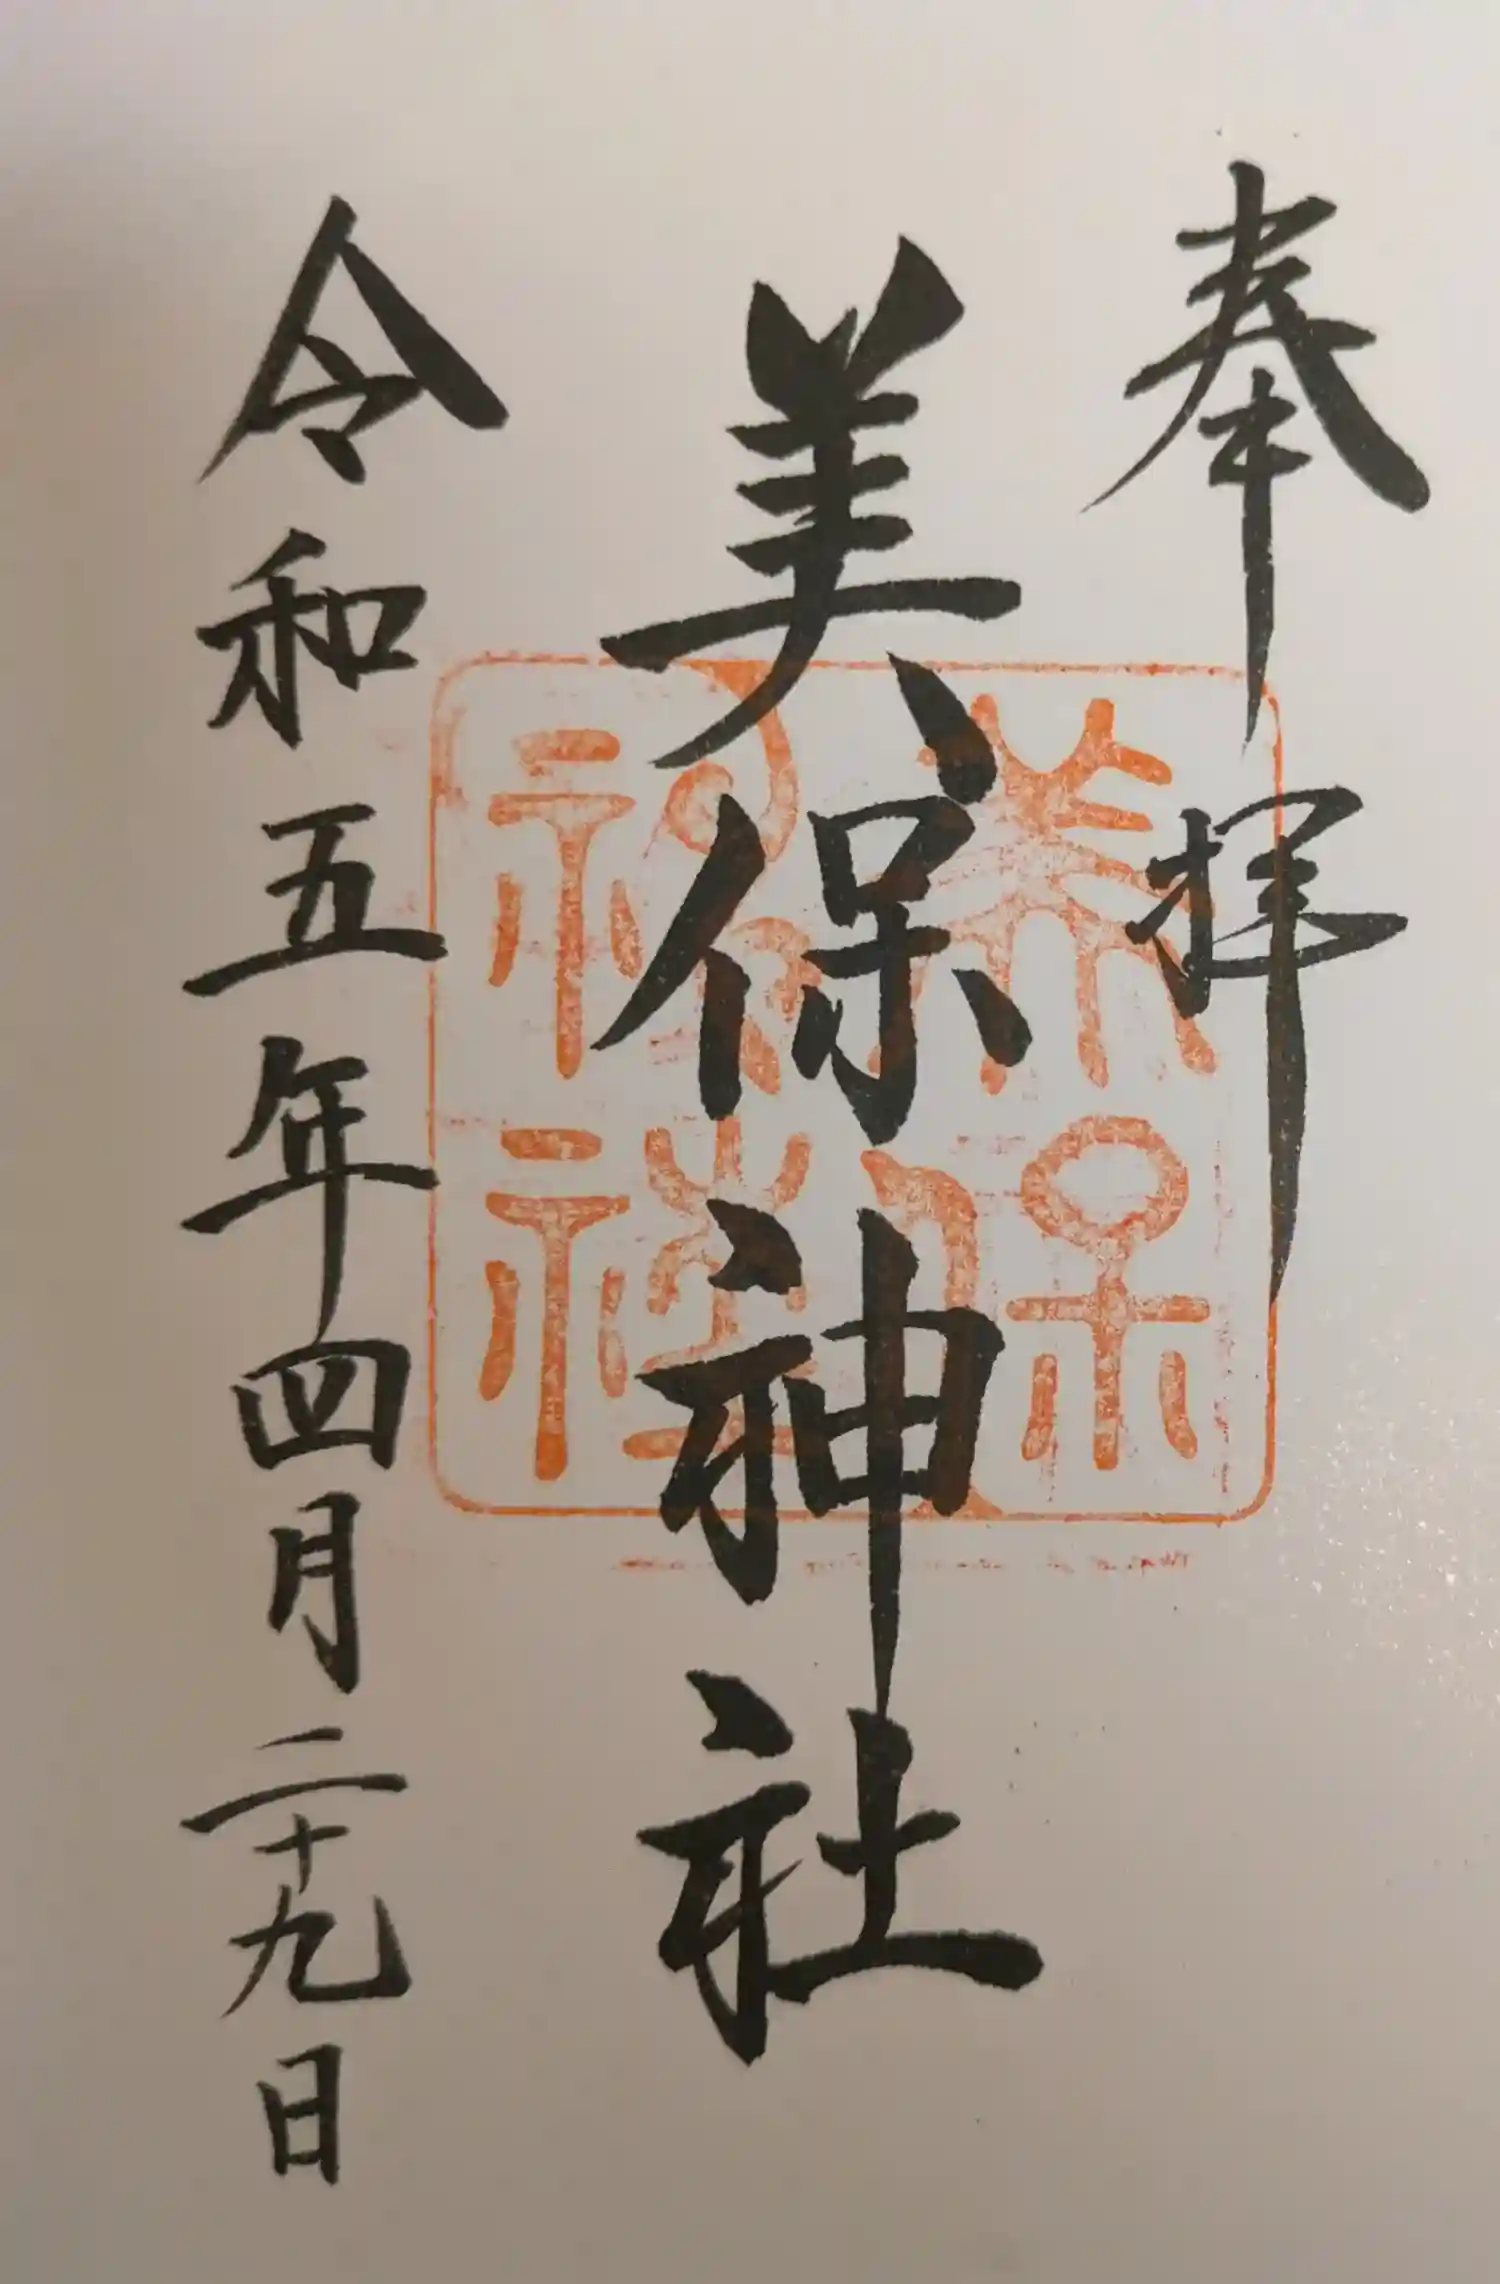 奉拝
美保神社
令和五年四月二十九日
美保
神社